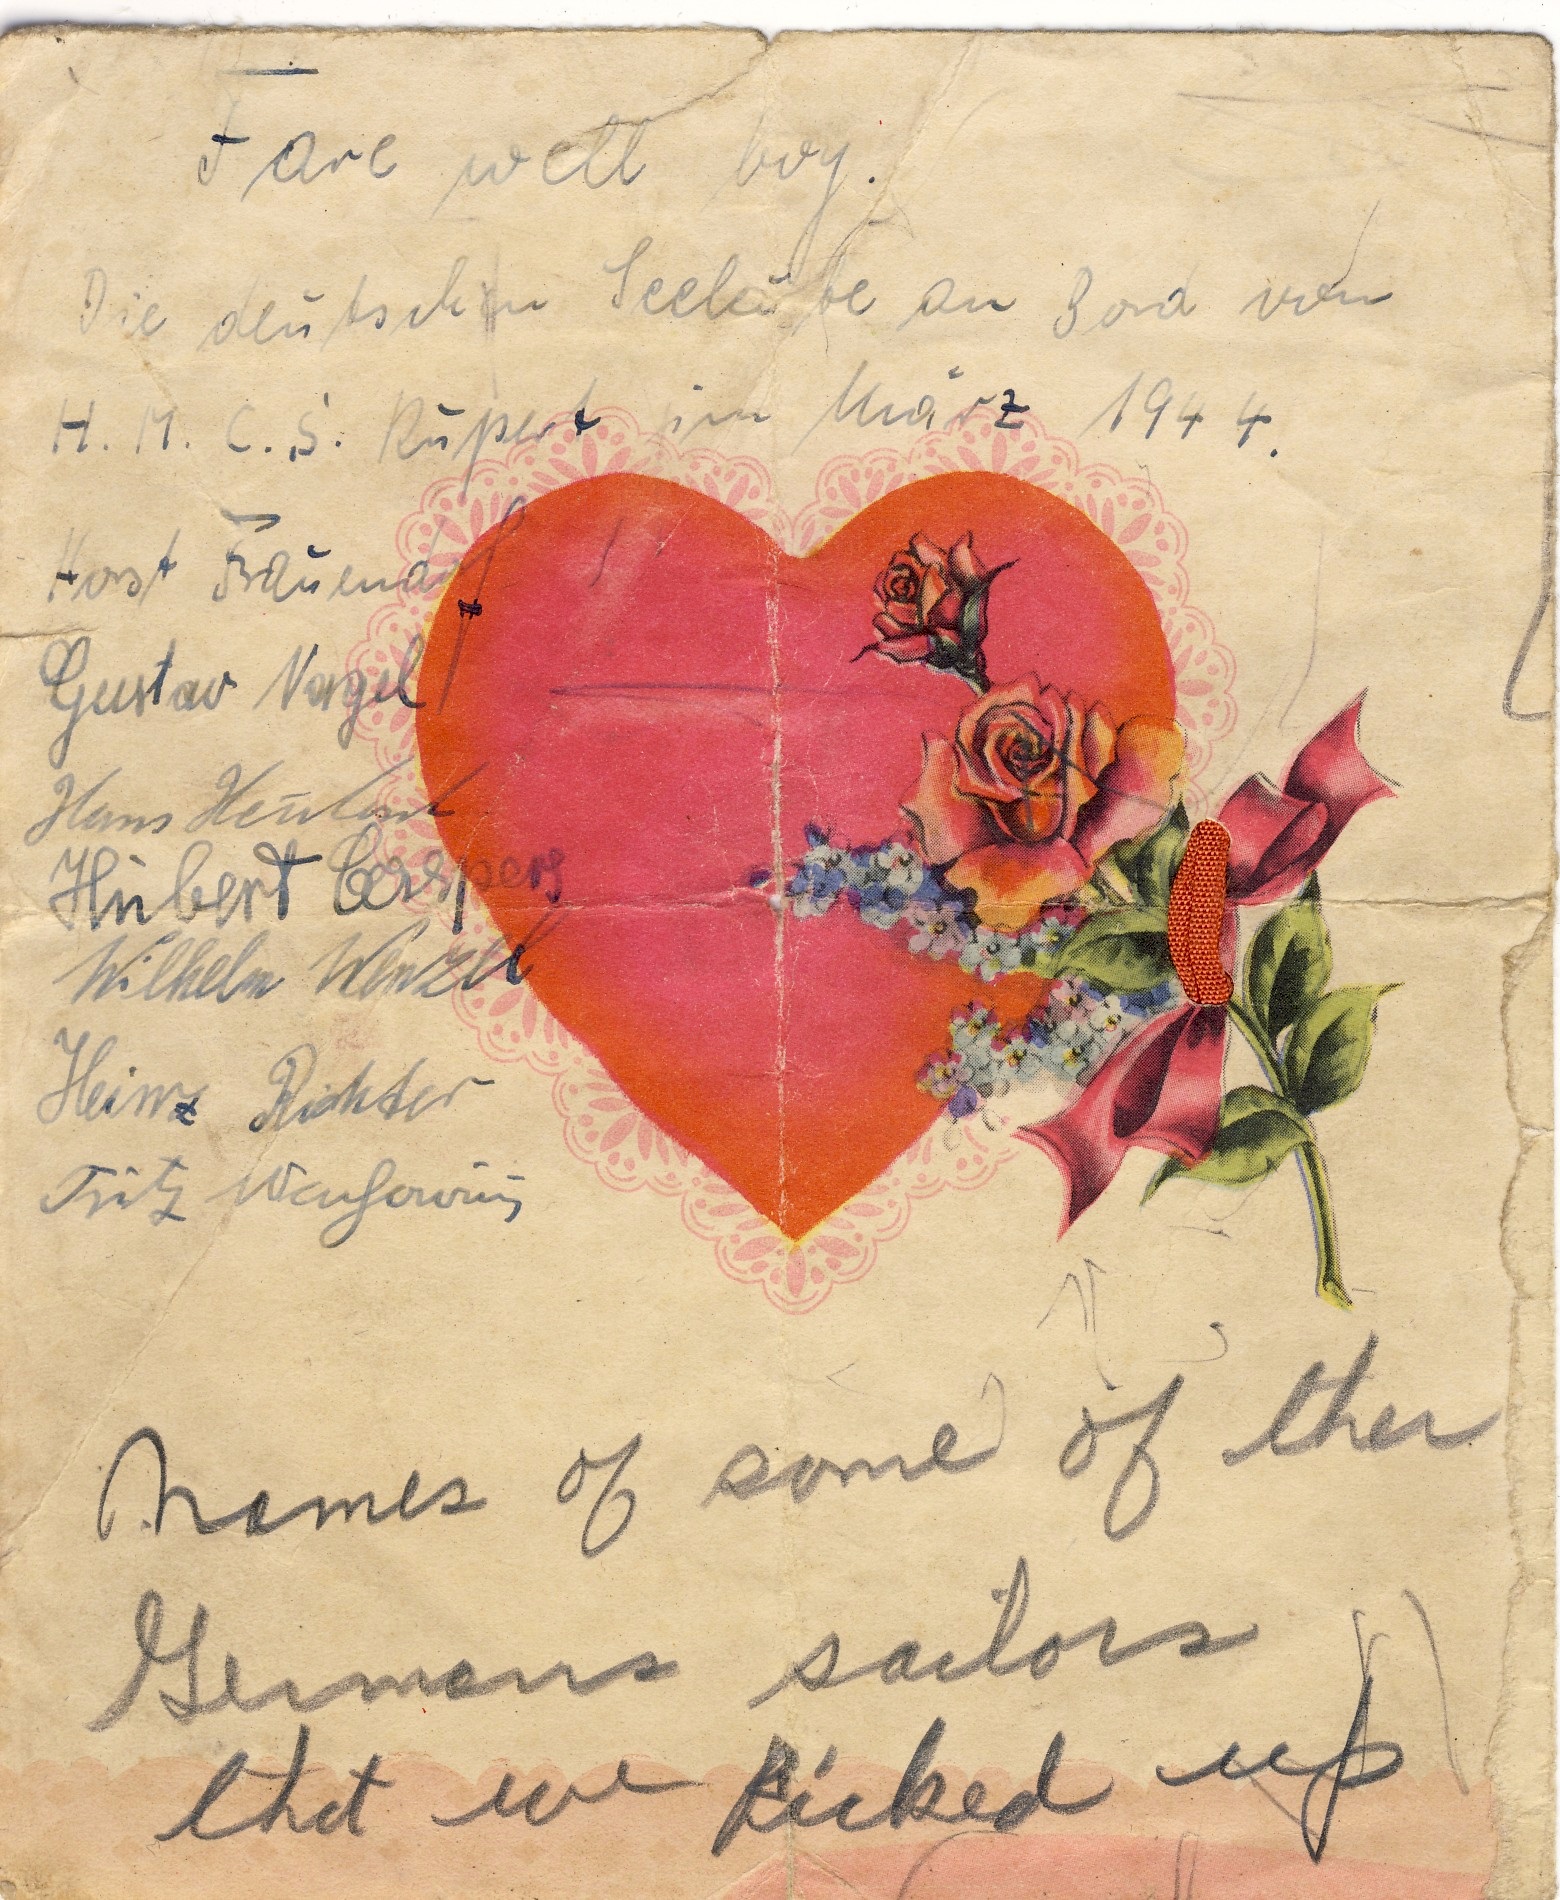 Fare well boy.
Die deutschen Seeleute an Bord von
H.M.C.S. Rupert im März 1944.
Horst Frauendorf
Gustav Nagel
Hans
Hubert Caspers
Wilhelm Wenzel
Heinz Richter
Fritz
Names of some of ther
Germans sailors
that we Picked up